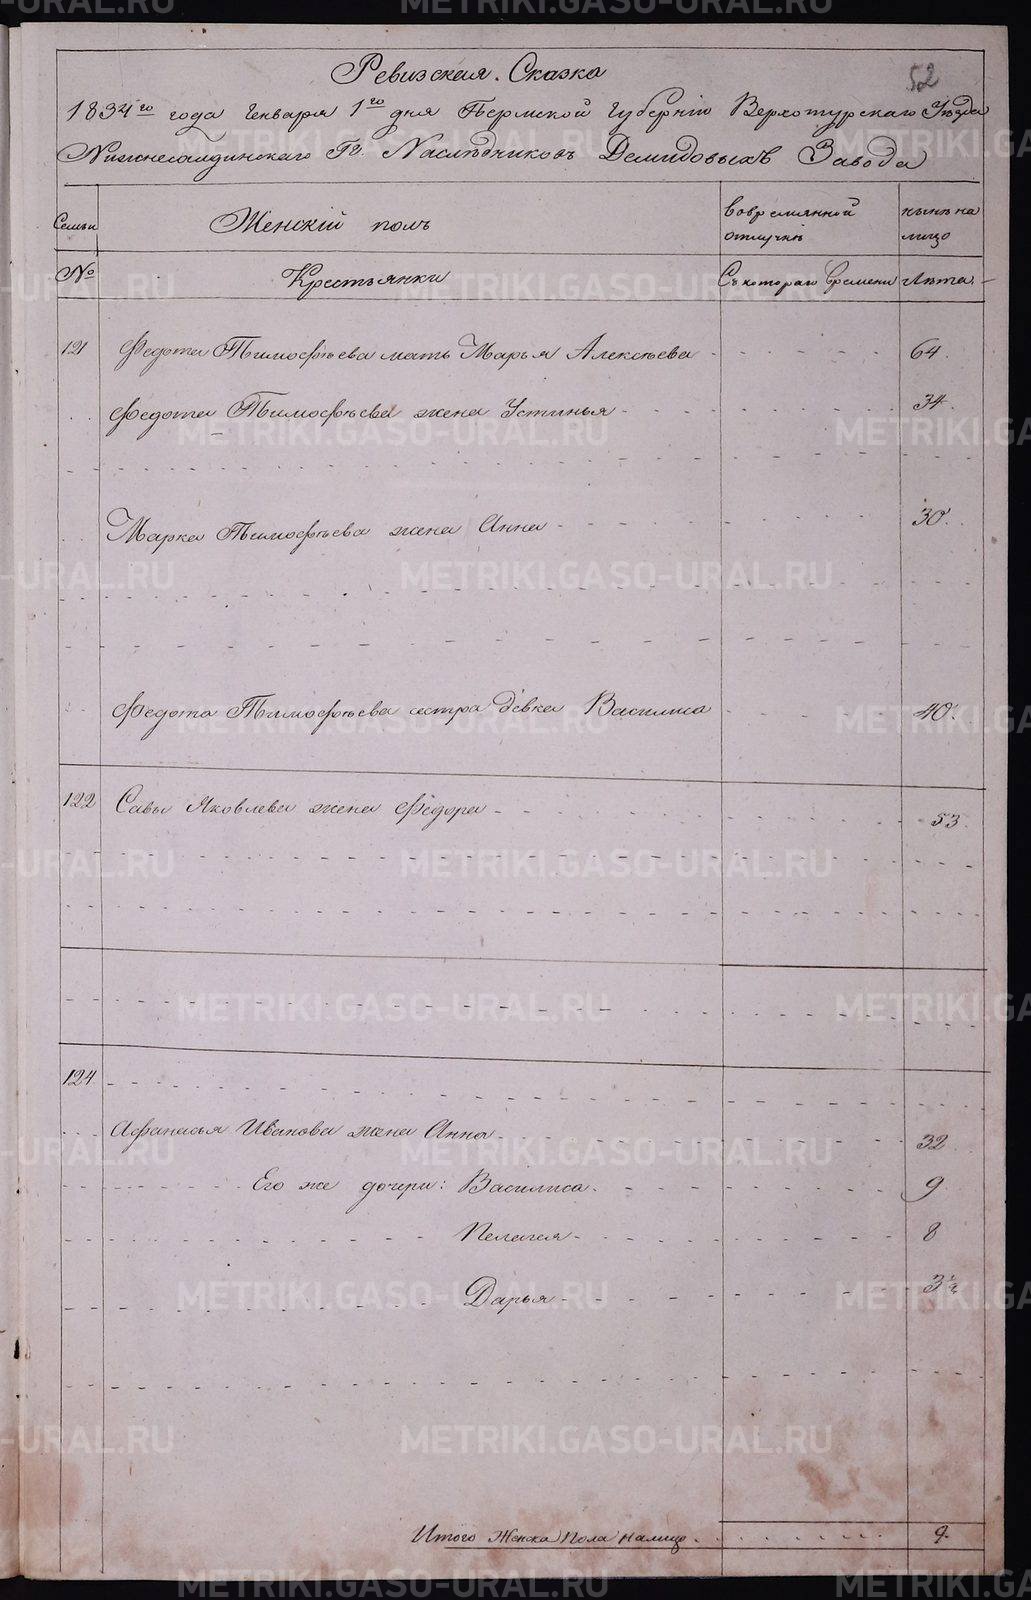 52
Ревизская Сказка
1834го года Генваря 1го дня Пермской Губерніи Верхотурскаго Уѣзда
Нижнесалдинскаго Гг. Наслѣдниковъ Демидовыхъ Завода
Семьи Женскій полъ вовремянной отлучкѣ нынѣ на лицо
№ Крестьянки Съ котораго времени Лѣта
121 Федота Тимофѣева мать Марья Алексѣева 64.
Федота Тимофѣева жена Устинья 34.
Марка Тимофѣева жена Анна 30.
Федота Тимофѣева сестра дѣвка Василиса 40.
122 Савы Яковлева жена Федора 53.
124
Афанасья Иванова жена Анна 32
Его же дочери: Василиса 9
Пелагея 8
Дарья 3½
Итого Женска Пола налицо 9.
METRIKI.GASO-URAL.RU